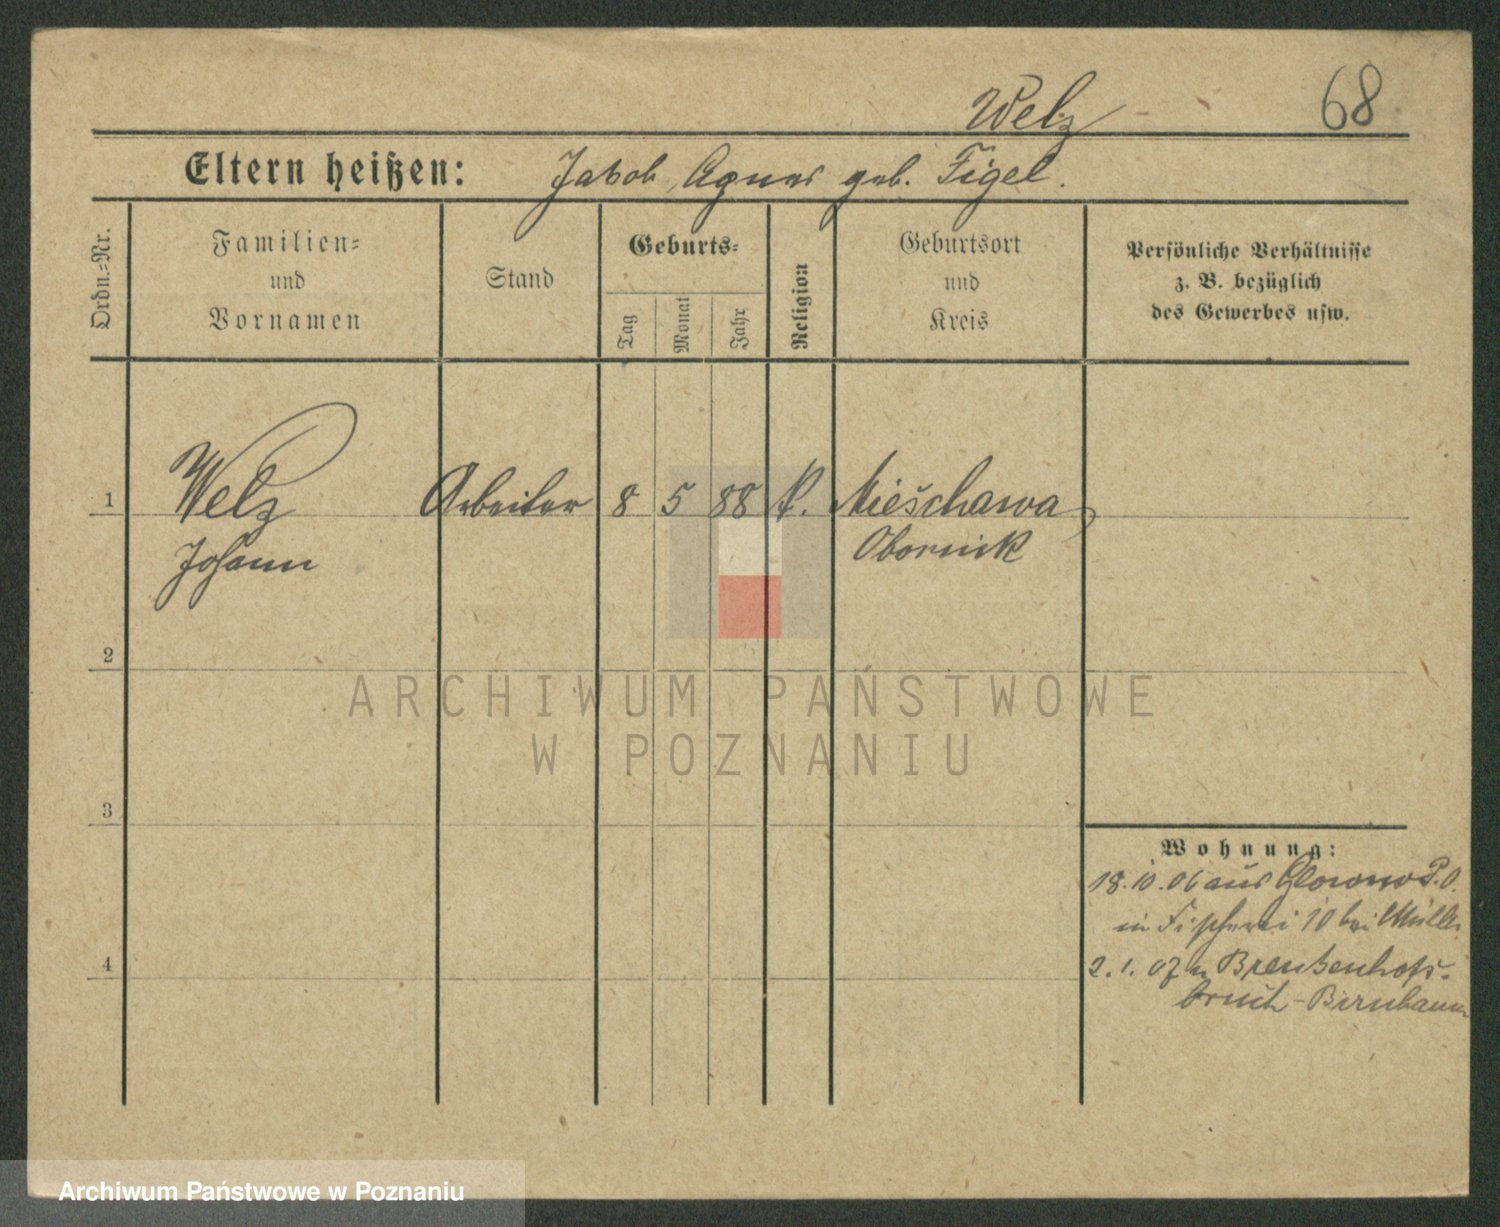 Welz
68
Eltern heißen: Jakob, Agnes geb. Figel.
Ordn.-Nr.
Familien-
und
Vornamen
Stand
Geburts-
Tag
Monat
Jahr
Religion
Geburtsort
und
Kreis
Persönliche Verhältnisse
z. B. bezüglich
des Gewerbes usw.
1 Welz Arbeiter 8 5 88 k. Mieschawa
Johann Obornick
2
3
4
ARCHIWUM PAŃSTWOWE
W POZNANIU
Wohnung:
18.10.06 aus Glowno P.O.
in Fischerei 10 bei Müller
2.1.07 n Brenkenhofs-
bruch-Birnbaum
Archiwum Państwowe w Poznaniu